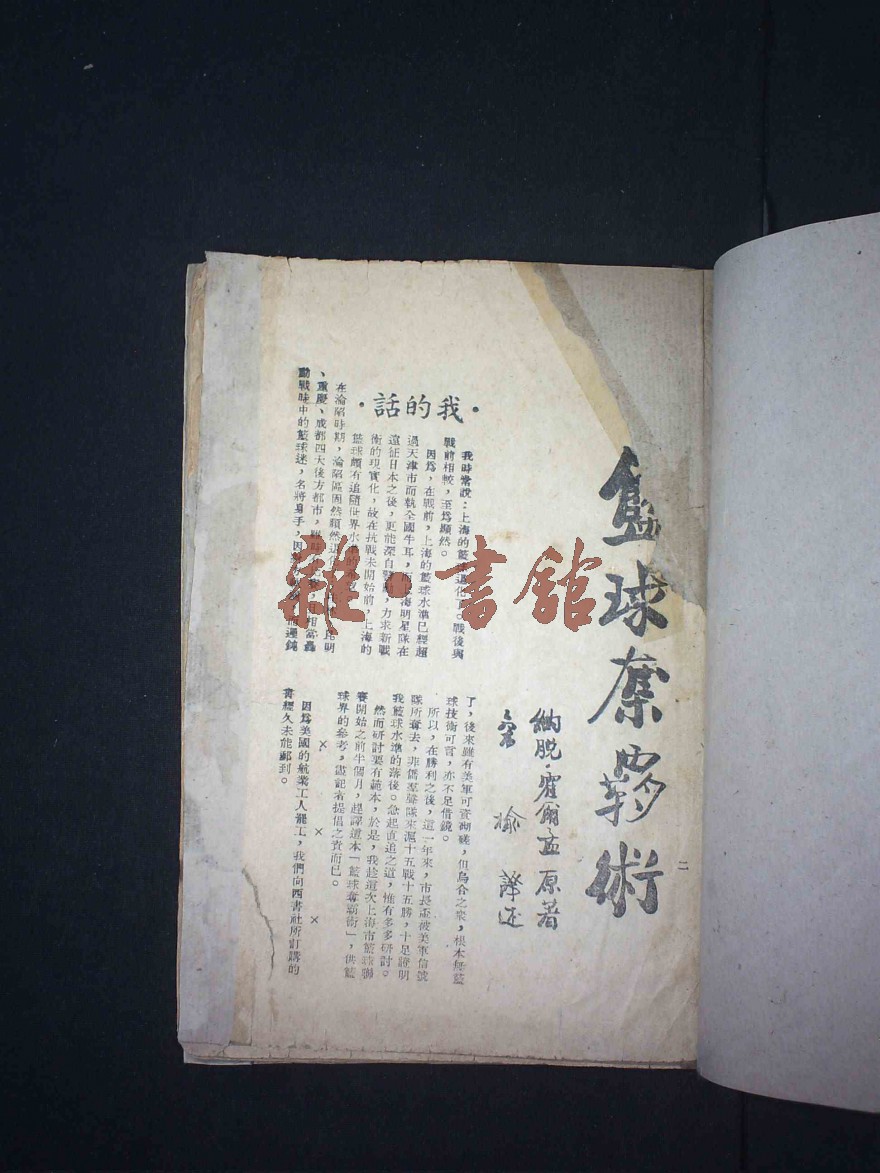 籃球奪霸術
二
納脫·霍爾孟 原著
榆 譯述
·我的話·
我時常說:上海的籃球退化了。戰後與
戰前相較,至爲顯然。
因爲,在戰前,上海的籃球水準已經超
過天津市而執全國牛耳,海明星隊在
遠征日本之後,更能深自警惕,力求新戰
術的現實化,故在抗戰未開始前,上海的
籃球頗有追隨世界水準的
在淪陷時期,淪陷區固然頹然退化 昆明
、重慶、成都四大後方都市, 相當轟
動戰時中的籃球迷,名將身手,因 遲鈍
了,後來雖有美軍可資切磋,但烏合之衆,根本無籃
球技術可言,亦不足借鏡。
所以,在勝利之後,這一年來,市長盃被美軍信號
隊所奪去,菲僑羣聲隊來滬十五戰十五勝,十足證明
我籃球水準的落後。急起直追之道,惟有多多研討。
然而研討要有藍本,於是,我趁這次上海市籃球聯
賽開始之前半個月,趕譯這本「籃球奪霸術」,供籃
球界的參考,盡記者提倡之責而已。
× × ×
因爲美國的航業工人罷工,我們向西書社所訂購的
書經久未能郵到。
雜·書館